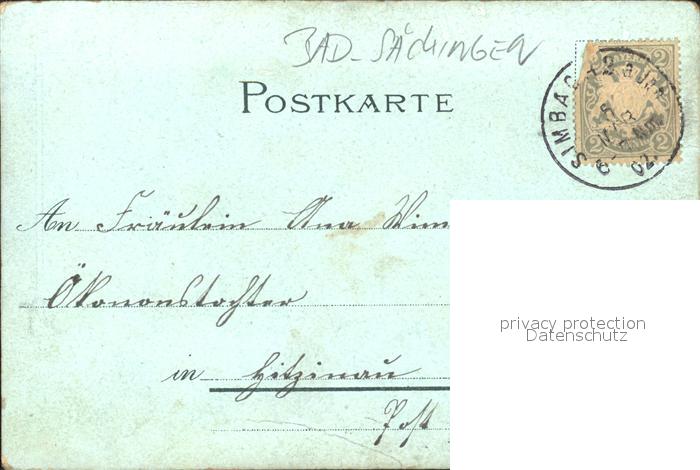 BAD-SÄCKINGEN
POSTKARTE
SIMBACH
2 BAYERN 2
5 MÄR
02
2 2
An Fräulein Ana Wim
Ökonomstochter
in Hitzinau
Post
privacy protection
Datenschutz